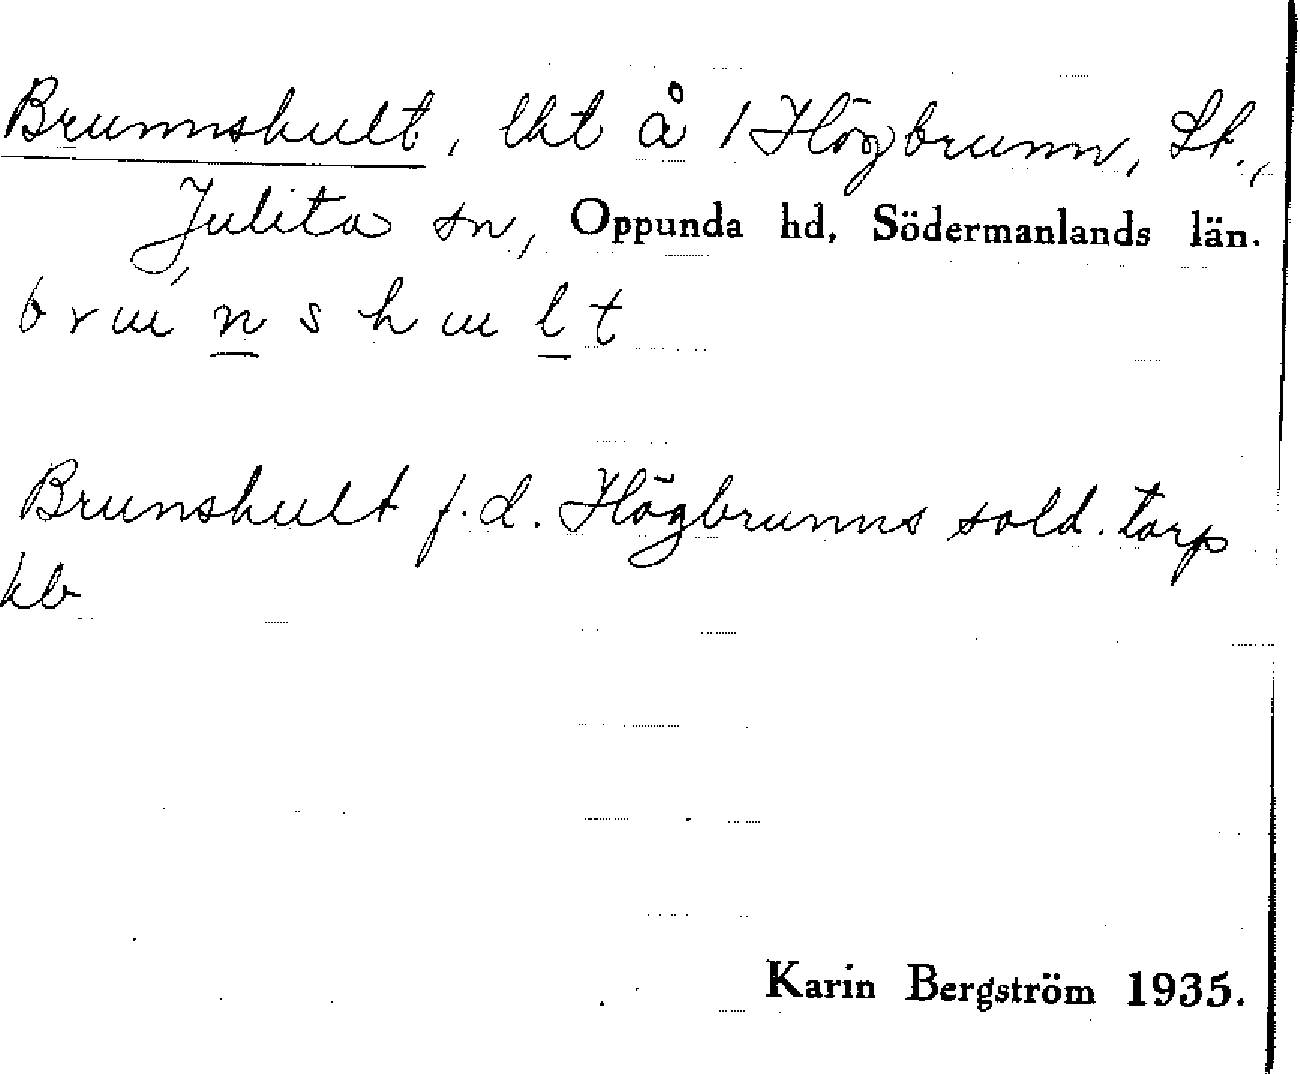 Brunnshult, lht å 1 Högbrunn, St.,
Julita sn, Oppunda hd, Södermanlands län.
b r u ́ n s h u l t
Brunshult f.d. Högbrunns sold. torp
kb
Karin Bergström 1935.